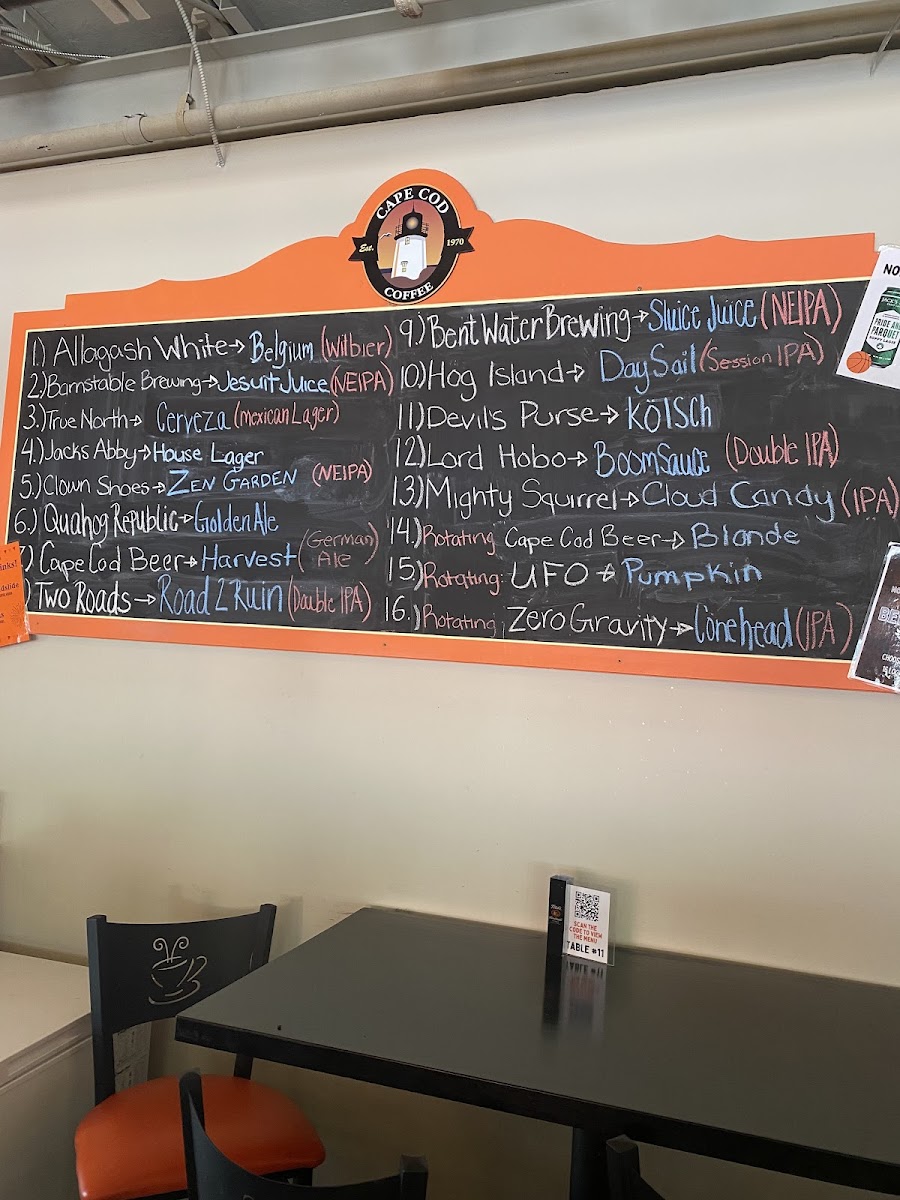 CAPE COD
Est. 1970
COFFEE
1.) Allagash White→ Belgium (Witbier)
2.) Barnstable Brewing→Jesuit Juice (NEIPA)
3.) True North→ Cerveza (mexican Lager)
4.) Jacks Abby→House Lager
5.) Clown Shoes→ZEN GARDEN (NEIPA)
6.) Quahog Republic→Golden Ale
7) Cape Cod Beer→Harvest (German Ale)
) Two Roads→Road 2 Ruin (Double IPA)
9.) Bent Water Brewing→Sluice Juice (NEIPA)
10) Hog Island→ Day Sail (Session IPA)
11) Devils Purse→ KÖLSCH
12) Lord Hobo→ BoomSauce (Double IPA)
13) Mighty Squirrel→Cloud Candy (IPA)
14.) Rotating Cape Cod Beer→ Blonde
15) Rotating: UFO → Pumpkin
16.) Rotating Zero Gravity→Conehead (IPA)
NO
JACK'S
PRIDE AND
PARQUET
HOPPY LAGER
inks!
BE
CHOOS
SCAN THE
CODE TO VIEW
THE MENU
TABLE #11